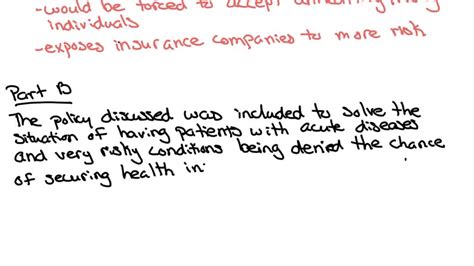 -would be forced to accept
individuals
-exposes insurance companies to more risk
Part B
The policy discussed was included to solve the
situation of having patients with acute diseases
and very risky conditions being denied the chance
of securing health in